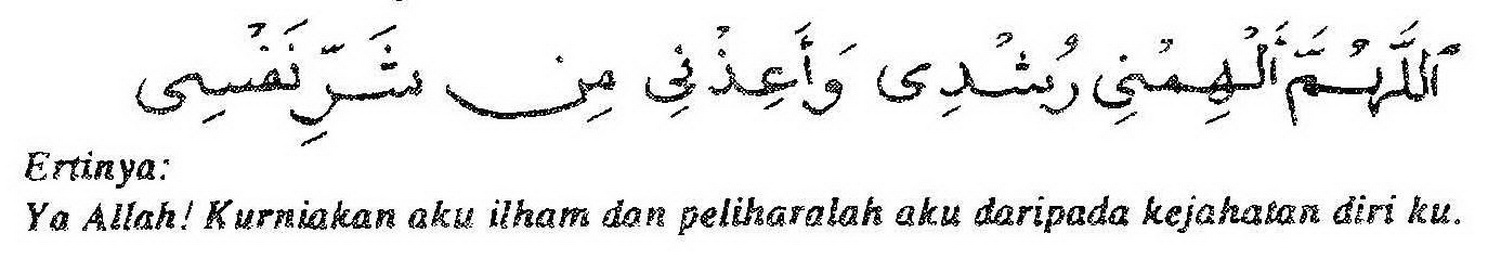 اَللَّهُمَّ أَلْهِمْنِي رُشْدِى وَأَعِذْنِي مِن شَرِّ نَفْسِى
Ertinya:
Ya Allah! Kurniakan aku ilham dan peliharalah aku daripada kejahatan diri ku.